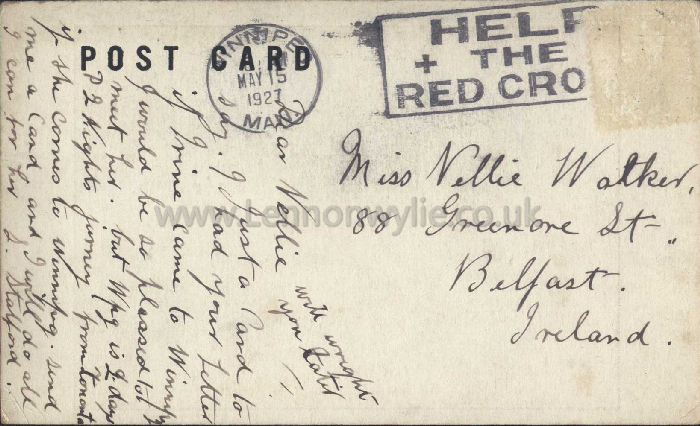 POST CARD
WINNIPEG
MAY 15
1927
MAN
HELP
+ THE
RED CRO
Miss Nellie Walker.
88 Greenore St
Belfast.
Ireland.
www.Lennonwylie.co.uk
Dear Nellie
Just a Card to
say I Had your Letter
if Irine came to Winnipg
I would be so pleased to
meet her. but Wpg is 2 days
2 Nights jurney from Toronto
if she comes to Winnipg. send
me a Card and I will do all
I can for her
will wright
you Latir